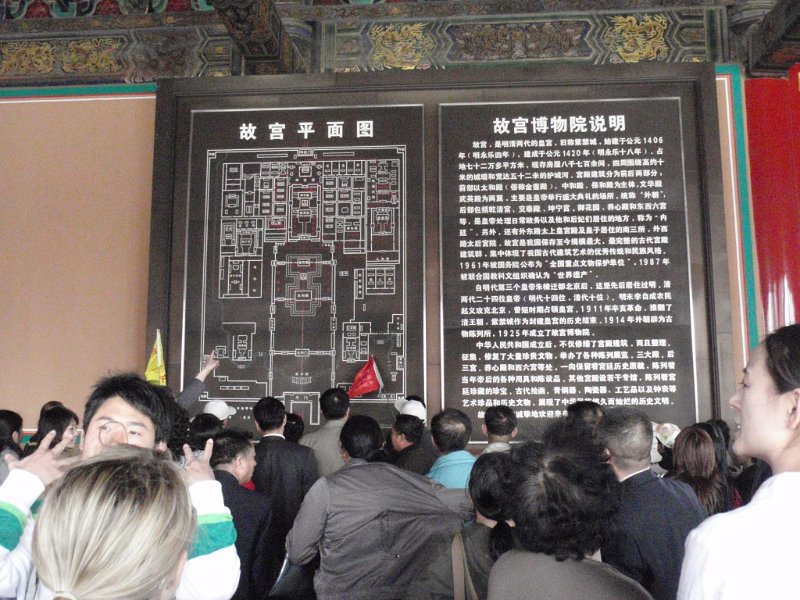 故宫平面图
故宫博物院说明
故宫，是明清两代的皇宫，旧称紫禁城，始建于公元1406
年（明永乐四年），建成于公元1420年（明永乐十八年），占
地七十二万多平方米，现存房屋八千七百余间，四周围绕高约十
米的城墙和宽达五十二米的护城河，宫殿建筑分为前后两部分：
前部以太和殿（俗称金銮殿）、中和殿、保和殿为主体，文华殿
武英殿为两翼，主要是皇帝举行盛大典礼的场所，统称“外朝”，
后部包括乾清宫、交泰殿、坤宁宫、御花园、养心殿和东西六宫
等，是皇帝处理日常政务以及他和后妃们居住的地方，称为“内
廷”。另外，还有外东路太上皇宫殿及皇子居住的南三所，外西
路太后宫院，故宫是我国保存至今规模最大、最完整的古代宫殿
建筑群，集中体现了我国古代建筑艺术的优秀传统和民族风格，
1961年被国务院公布为“全国重点文物保护单位”，1987年
被联合国教科文组织确认为“世界遗产”。
自明代第三个皇帝朱棣迁都北京后，这里先后居住过明、清
两代二十四位皇帝（明代十四位，清代十位）。明末李自成农民
起义攻克北京，曾短时期占领皇宫，1911年辛亥革命，推翻了
清王朝，紫禁城作为封建皇宫的历史结束，1914年外朝辟为古
物陈列所，1925年成立了故宫博物院。
中华人民共和国成立后，不仅修缮了宫殿建筑，而且整理、
征集、修复了大量珍贵文物，举办了各种陈列展览，三大殿、后
三宫、养心殿和西六宫等处，一向保留着宫廷历史原貌，陈列着
当年帝后的各种用具和陈设品，其他宫殿设若干专馆，陈列着宫
廷珍藏的珍宝、古代绘画、青铜器、陶瓷器、工艺品以及钟表等
艺术珍品，展现了中华民族悠久而灿烂的历史文明。